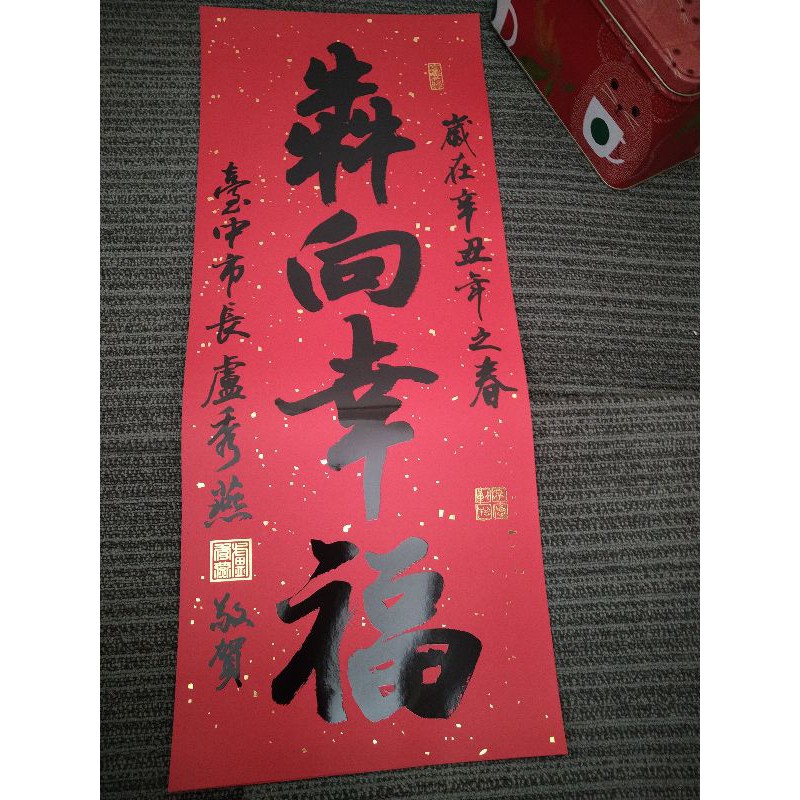 歲在辛丑年之春
犇向幸福
臺中市長盧秀燕
敬賀